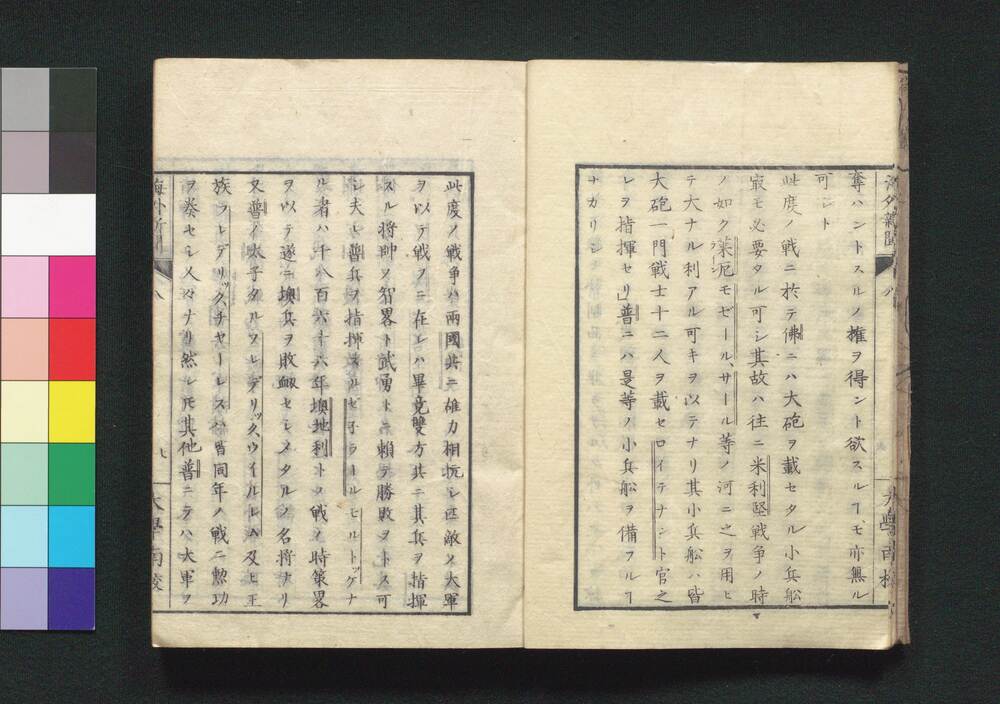 奪ハントスルノ權ヲ得ント欲スルヿモ亦無ル
可シト
此度ノ戰ニ於テ佛ニハ大砲ヲ載セタル小兵舩
最モ必要タル可シ其故ハ往ニ米利堅戰争ノ時
ノ如ク萊尼モゼール、サール等ノ河ニ之ヲ用ヒ
テ大ナル利アル可キヲ以テナリ其小兵舩ハ皆
大砲一門戰士十二人ヲ載セロイテナント官之
レヲ指揮セリ普ニハ是等ノ小兵舩ヲ備フルヿ
ナカリシ
此度ノ戰争ハ兩國共ニ雄力相抗シ匹敵ノ大軍
ヲ以テ戰フニ在レハ畢竟雙方共ニ其兵ヲ指揮
スル將帥ノ智畧ト武勇トニ賴テ勝敗ヲトス可
シ夫レ普兵ヲ指揮スルゼ子ラールヒルトッゲナ
ル者ハ千八百六十六年墺地利トノ戰ノ時策畧
ヲ以テ遂ニ墺兵ヲ敗衂セシメタルノ名將ナリ
又普ノ太子タルフレデリック、ウイルレム及ヒ王
族フレデリック、チヤーレスハ皆同年ノ戰ニ勲功
ヲ奏セシ人々ナリ然レモ其他普ニテハ大軍ヲ
海外新聞
八
九
大學南校